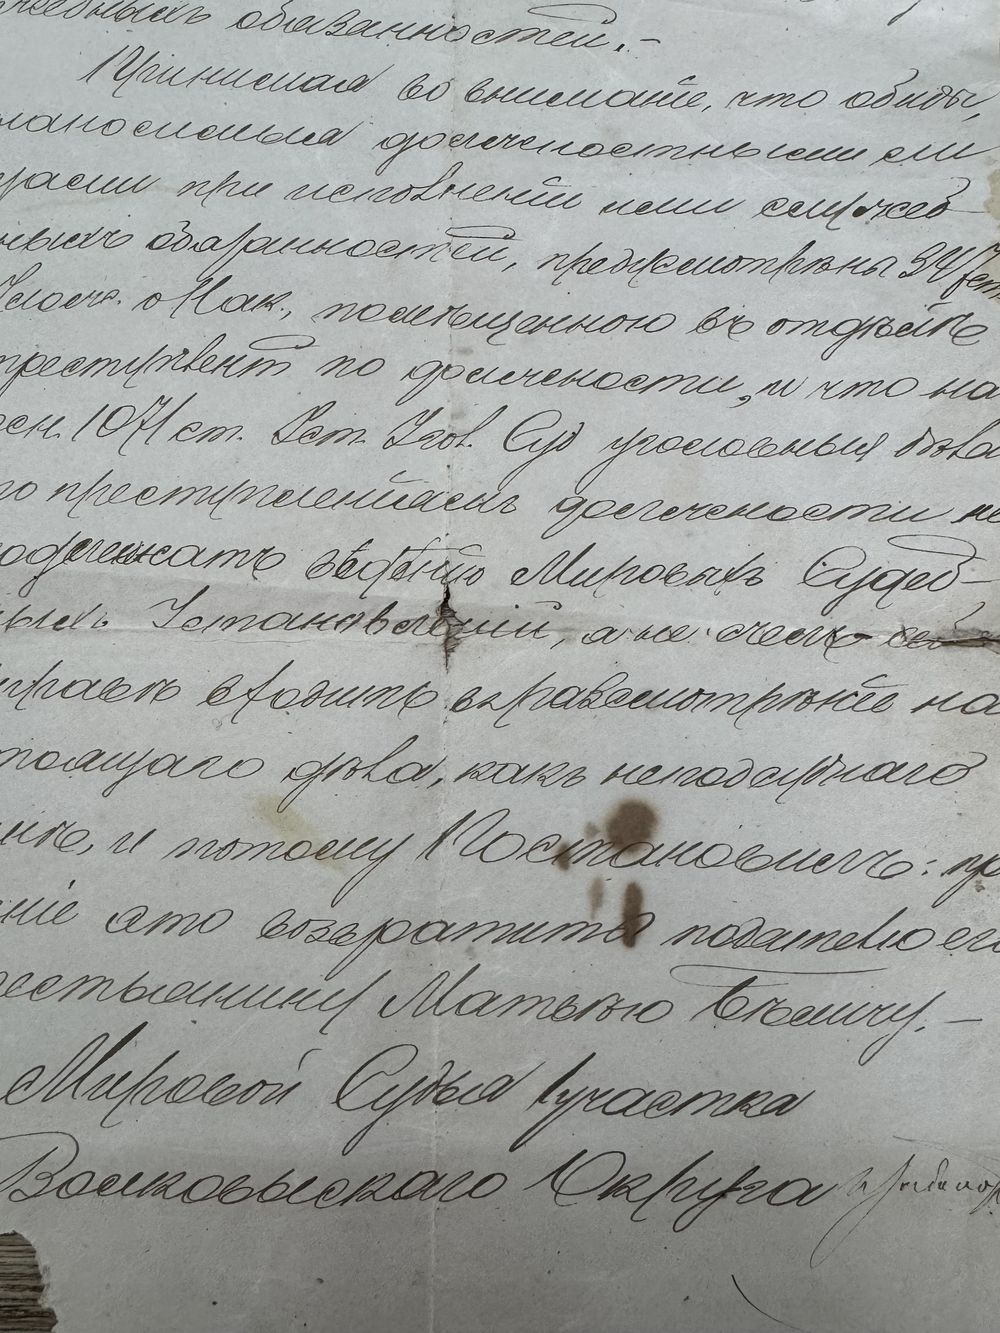 обязанностей.–
Принимая во вниманіе, что обиды,
наносимыя должностными ли
цами при исполненіи ими служеб
ныхъ обязанностей, предусмотрѣны 34 ст
Улож. о Нак., помѣщенною въ отдѣлѣ
преступленій по должности, и что на
осн. 1071 ст. Уст. Угол. Суд уголовныя дѣла
по преступленіямъ должности не
подлежатъ вѣдѣнію Мировыхъ Судеб–
ныхъ Установленій, а не
вправѣ входить въ разсмотрѣніе на
стоящаго дѣла, какъ неподсуднаго
мнѣ, и потому Постановилъ: про
ніе это возвратить подателю его
крестьянину Матвѣю Бѣличу.–
Мировой Судья 1 участка
Волковыскаго Округа